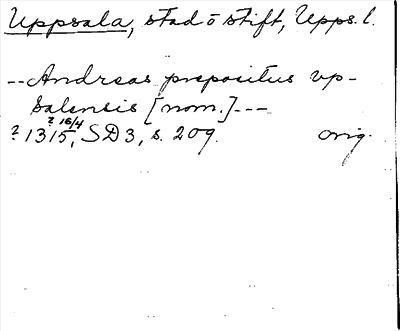 Uppsala, stad o stift, Upps. l.
-- Andreas prepositus vp-
salensis [nom.] ---
? 16/4
? 1315, SD 3, s. 209. orig.